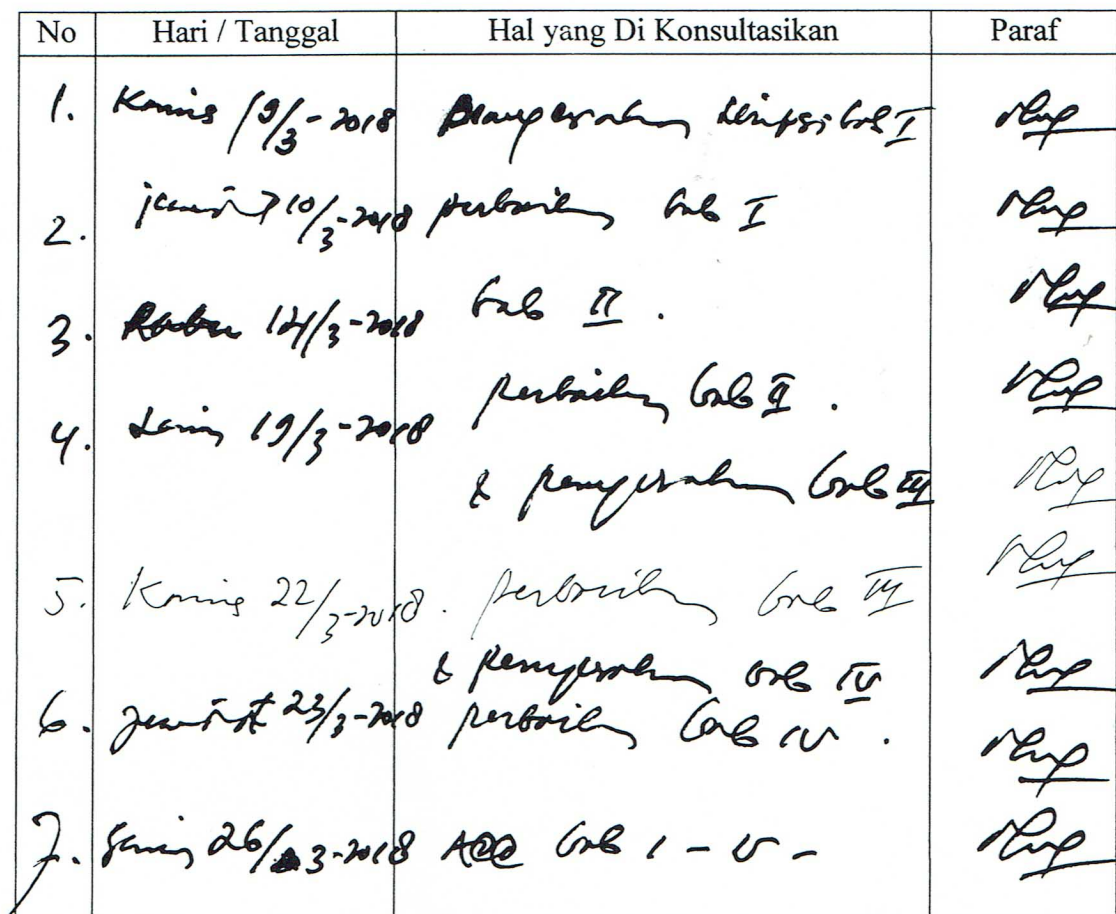 No Hari / Tanggal Hal yang Di Konsultasikan Paraf
1. Kamis /9/3-2018 penyerahan skripsi bab I
2. jum'at 10/3-2018 perbaikan bab I
3. Rabu 14/3-2018 bab II .
4. Senin 19/3-2018 perbaikan bab II .
& penyerahan bab III
5. Kamis 22/3-2018 . perbaikan bab III
& penyerahan bab IV
6. Jum'at 23/3-2018 perbaikan bab IV .
7. Senin 26/3-2018 ACC bab I - V -